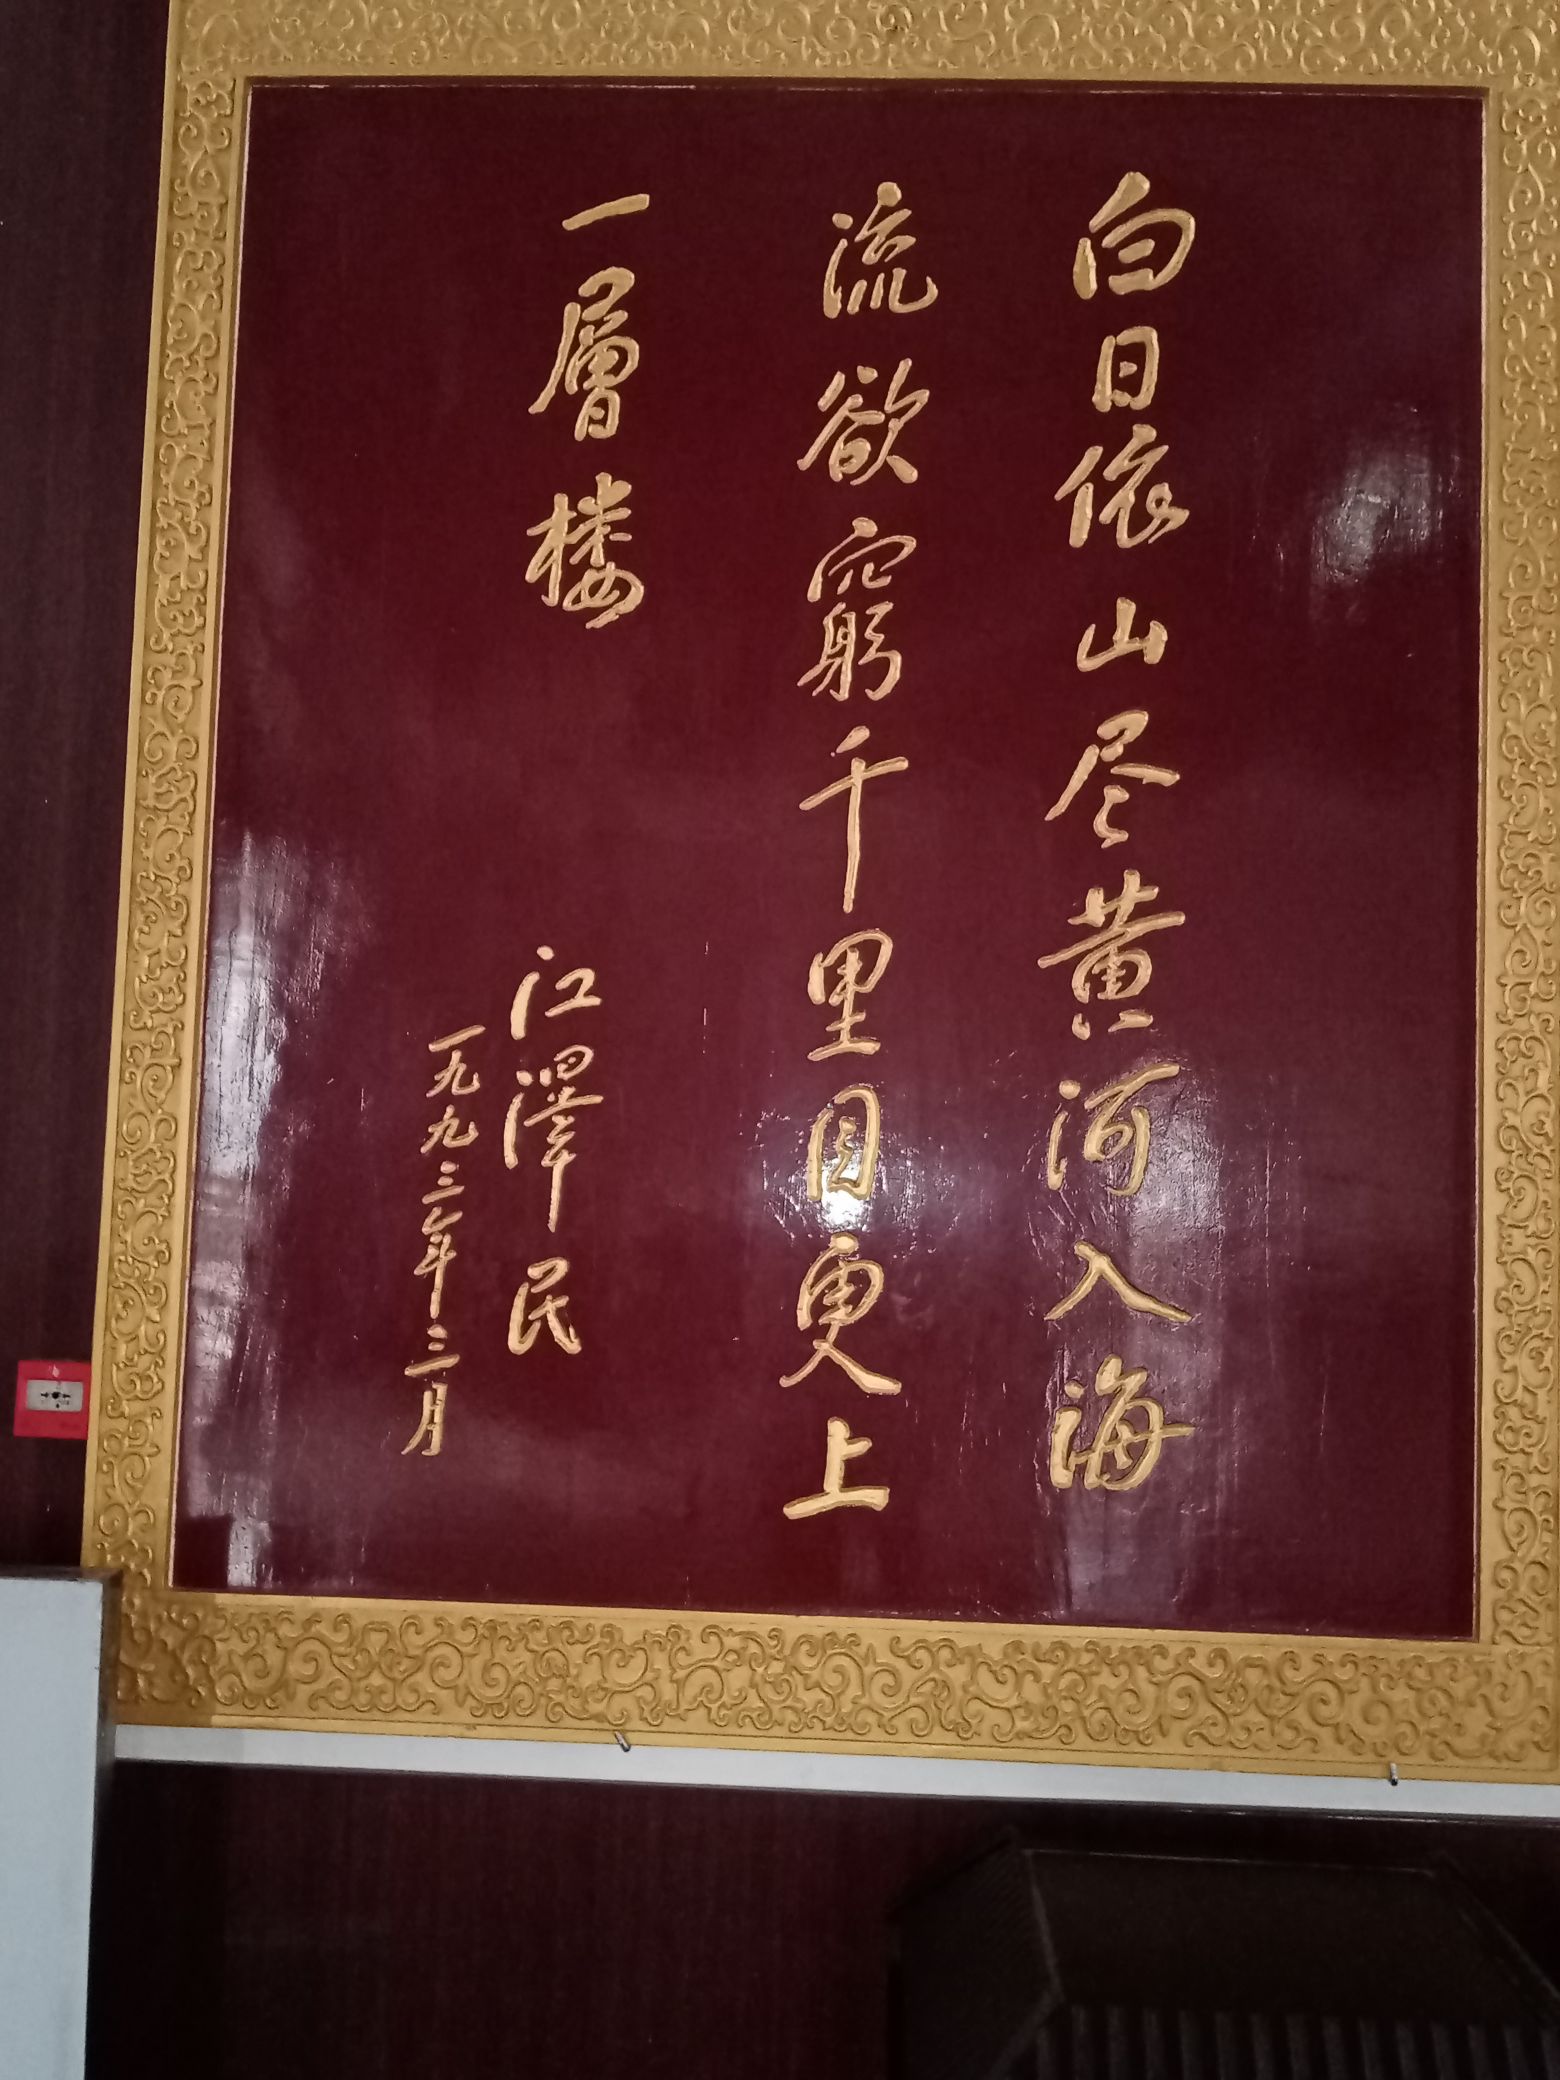 白日依山尽黄河入海
流欲窮千里目更上
一層楼
江澤民
一九九三年三月